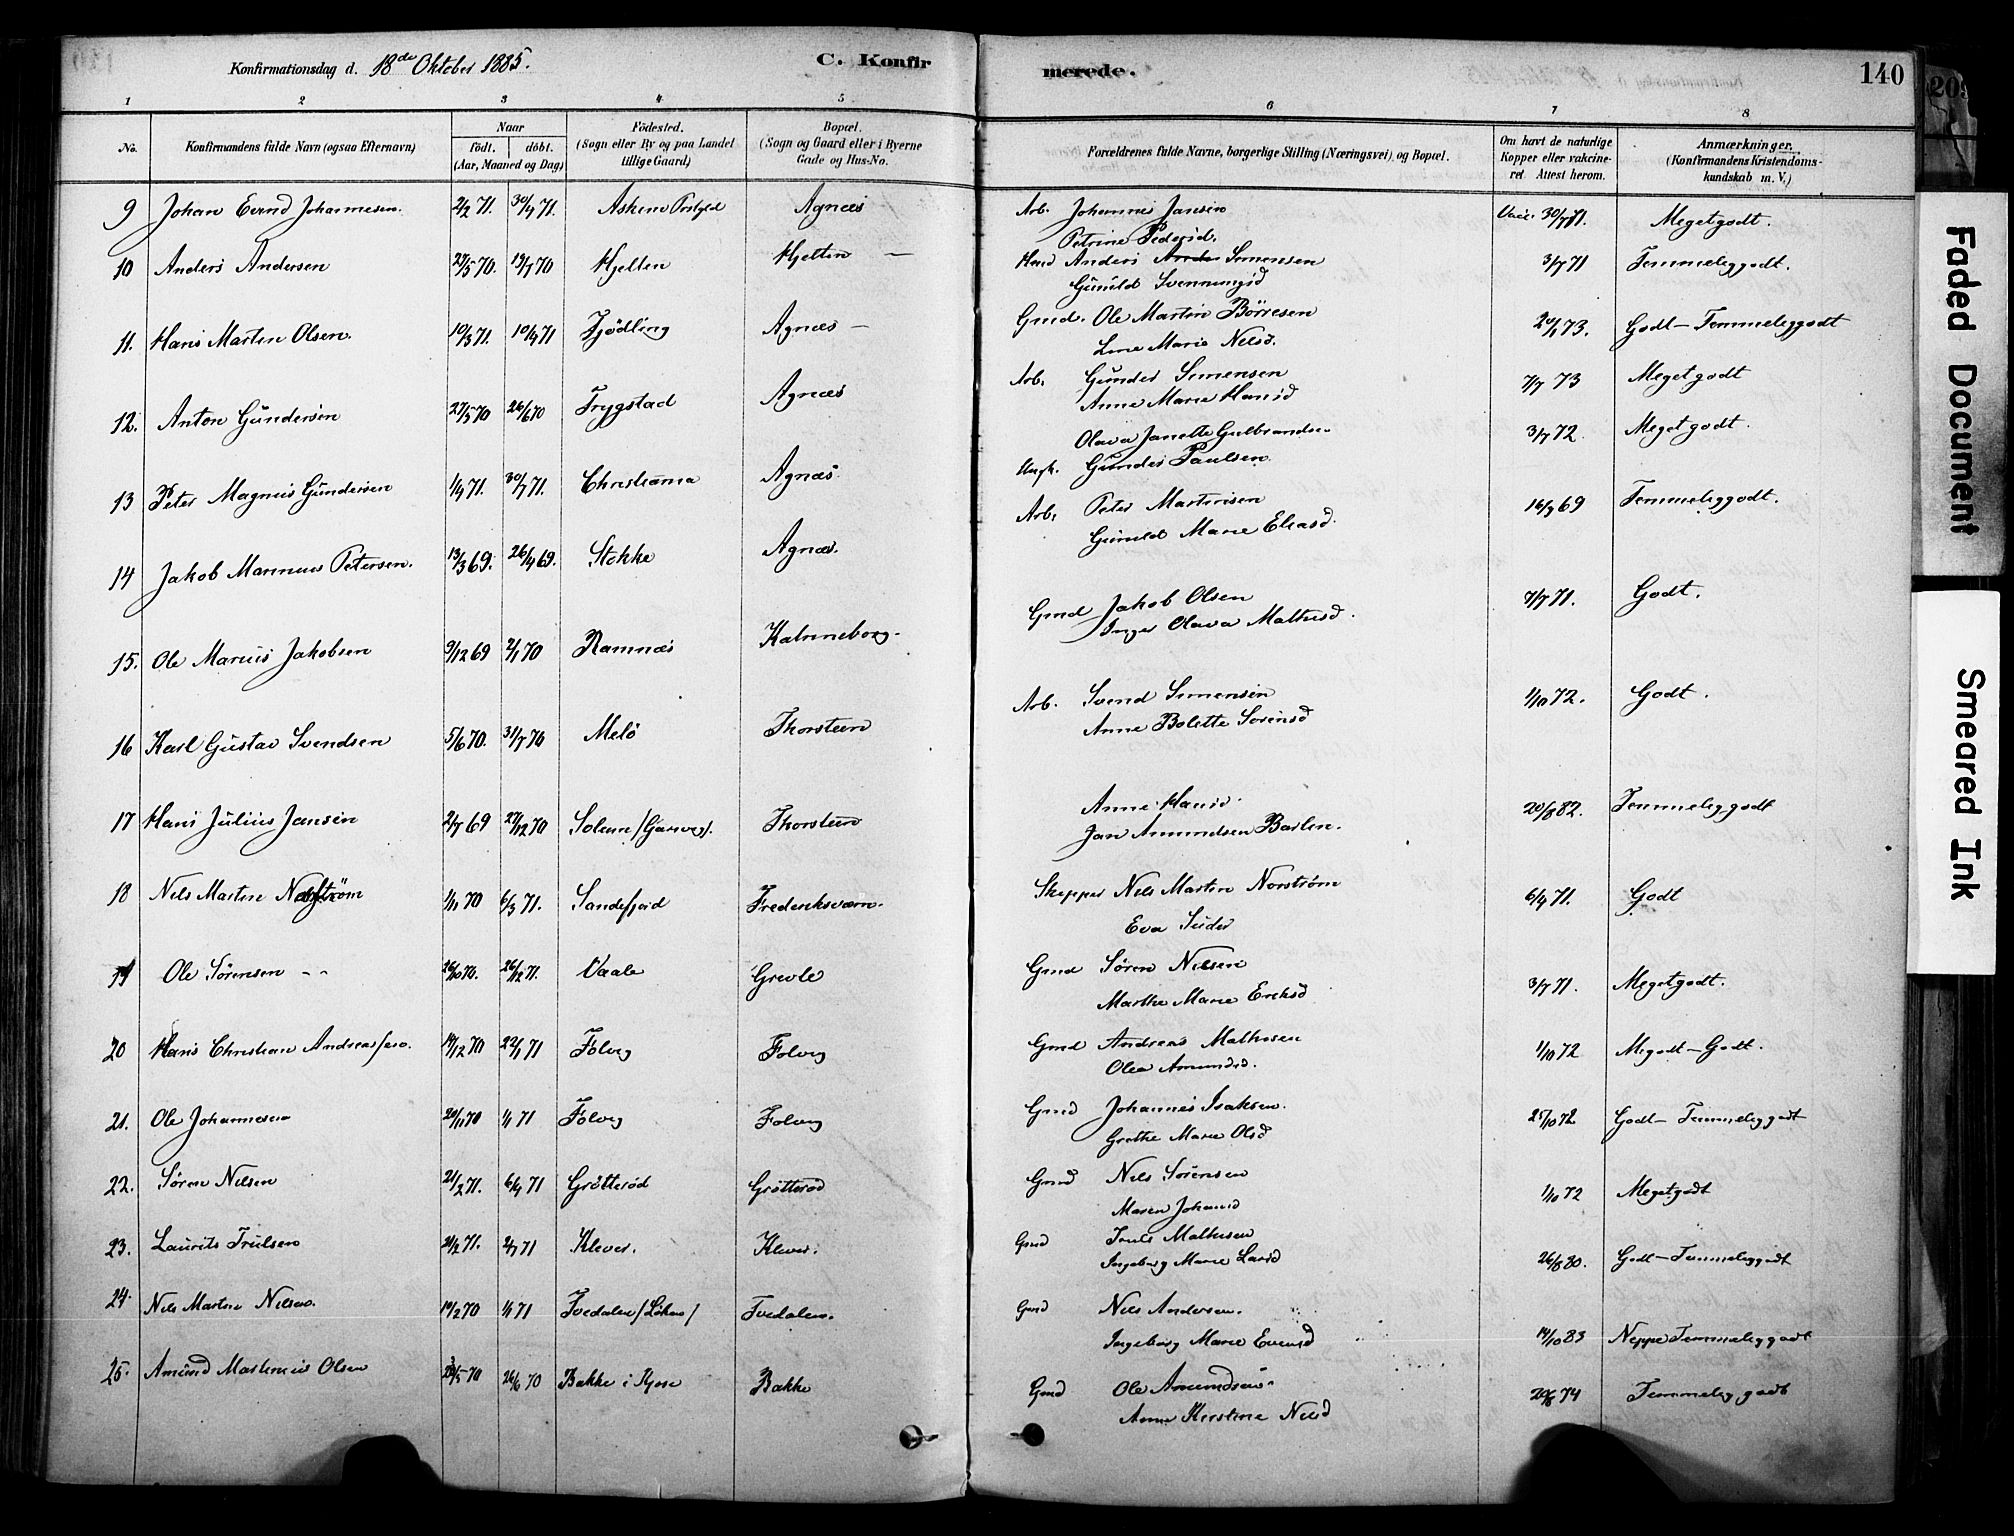 Konfirmationsdag d. 18de Oktober 1885.
C. Konfirmerede.
140
1 2 3 4 5 6 7 8
No. Konfirmandens fulde Navn (ogsaa Efternavn) Naar födt. döbt. (Aar, Maaned og Dag) Födested. (Sogn eller By og paa Landet tillige Gaard) Bopæl. (Sogn og Gaard eller i Byerne Gade og Hus-No. Forældrenes fulde Navne, borgerlige Stilling (Næringsvei), og Bopæl. Om havt de naturlige Kopper eller vakcineret. Attest herom. Anmærkninger. (Konfirmandens Kristendomskundskab m. V.)
9 Johan Evend Johannesen. 2/2 71. 30/4 71. Agnæs Arb. Johannes Jansen Petrine Pedersd. 30/7 71. Meget godt.
10 Anders Andersen 29/5 70. 13/7 70 Hjelten Hjelten — Anders Simensen Gunild Svenningsd 3/7 71 Temmeliggodt.
11. Hans Martin Olsen. 10/3 71. 10/4 71 Tjödling Agnæs — Gmd. Ole Martin Börresen Line Marie Nilsd. 20/1 73. Godt—Temmeliggodt
12. Anton Gundersen 27/5 70 26/6 70 Trygstad Agnæs Arb. Gunder Simensen Anne Marie Hansd 7/7 73 Megetgodt
13 Peter Magnus Gundersen 1/4 71. 30/7 71. Christiania Agnæs Olava Janette Gulbrandsen Ungk. Gunder Paulsen. 3/7 72. Meget godt.
14 Jakob Marinus Petersen. 13/3 69. 26/4 69. Stokke Agnæs. Arb. Peter Martinsen Gunild Marie Eliasd. 16/9 69 Temmeliggodt.
15. Ole Marius Jakobsen 9/12 69 2/1 70 Ramnæs Gmd Jakob Olsen Inger Olava Mathisd. 7/7 71. Godt.
16 Karl Gustav Svendsen 5/6 70. 31/7 70 Melö Thorsteen Arb. Svend Simensen Anne Bolette Sörensd 1/10 72. Godt.
17 Hans Julius Jansen 2/7 69 27/12 70 Thorsteen Anne Hansd. Jan Amundsen Barlen. 20/8 82. Temmeliggodt
18 Nils Martin Norström 1/11 70 6/3 71. Sandefjord Frederiksværn. Skipper Nils Martin Norström Eva 6/4 71. Godt
19 Ole Sörensen 26/10 70. 26/12 71. Vaale Grevle Gmd Sören Nilsen Marthe Marie Eriksd 3/7 71. Megetgodt.
20 Hans Christian Andreassen. 14/12 70 22/1 71 Folvig Folvig Gmd Andreas Mathisen Olea Amundsd. 1/10 72 Megodt—Godt.
21. Ole Johannesen 20/11 70 1/1 71 Folvig Folvig Gmd Johannes Isaksen. Grethe Marie Olsd 25/10 72 Godt—Temmeliggodt
22. Sören Nilsen 21/2 71. 6/4 71 Grötteröd Grötteröd Gmd Nils Sörensen Maren Johansd 1/10 72 Megetgodt
23. Laurits Trulsen 21/2 71. 2/7 71 Klever. Klever. Gmd Truls Mathisen Ingeborg Marie Larsd 26/8 80. Godt—Temmeliggodt
24. Nils Martin Nilsen. 19/2 70 1/1 71 Tvedalen Tvedalen. Gmd Nils Andersen. Ingeborg Marie Evensd 14/10 83 Neppe Temmeliggodt
25. Amund Martinius Olsen 26/6 70 Bakke i Kjose Bakke Gmd Ole Amundsen Anne Kirstine Nilsd Temmeliggodt
Faded Document
Smeared Ink